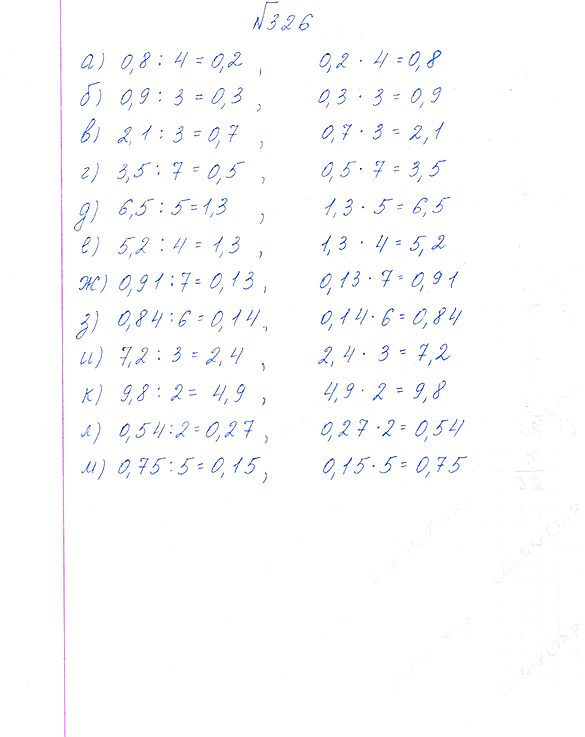 №326
а) 0,8 : 4 = 0,2 , 0,2 · 4 = 0,8
б) 0,9 : 3 = 0,3 , 0,3 · 3 = 0,9
в) 2,1 : 3 = 0,7 , 0,7 · 3 = 2,1
г) 3,5 : 7 = 0,5 , 0,5 · 7 = 3,5
д) 6,5 : 5 = 1,3 , 1,3 · 5 = 6,5
е) 5,2 : 4 = 1,3 , 1,3 · 4 = 5,2
ж) 0,91 : 7 = 0,13 , 0,13 · 7 = 0,91
з) 0,84 : 6 = 0,14 , 0,14 · 6 = 0,84
и) 7,2 : 3 = 2,4 , 2,4 · 3 = 7,2
к) 9,8 : 2 = 4,9 , 4,9 · 2 = 9,8
л) 0,54 : 2 = 0,27 , 0,27 · 2 = 0,54
м) 0,75 : 5 = 0,15 , 0,15 · 5 = 0,75